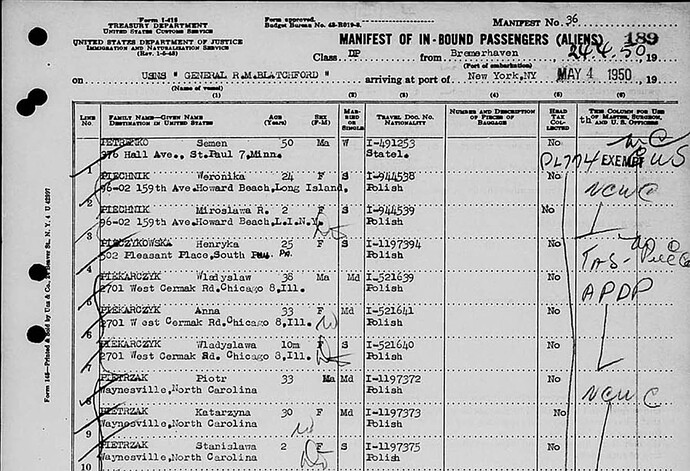 Form I-418
TREASURY DEPARTMENT
UNITED STATES CUSTOMS SERVICE
UNITED STATES DEPARTMENT OF JUSTICE
IMMIGRATION AND NATURALIZATION SERVICE
(Rev. 1-5-48)
Form approved.
Budget Bureau No. 43-R019-2.
MANIFEST NO. 36
MANIFEST OF IN-BOUND PASSENGERS (ALIENS) 189
Class DP from Bremerhaven 24.4.50, 19
(Port of embarkation)
on USNS "GENERAL R.M.BLATCHFORD" arriving at port of New York,NY MAY 4 1950, 19
(Name of vessel)
(1) (2) (3) (4) (5) (6)
LINE NO. FAMILY NAME—GIVEN NAME DESTINATION IN UNITED STATES AGE (YEARS) SEX (F-M) MARRIED OR SINGLE TRAVEL DOC. NO. NATIONALITY NUMBER AND DESCRIPTION OF PIECES OF BAGGAGE HEAD TAX COLLECTED THIS COLUMN FOR USE OF MASTER, SURGEON, AND U. S. OFFICERS
PETRENKO Semen 50 Ma W I-491253
376 Hall Ave., St.Paul 7,Minn. Statel. PL774 EXEMPT
1
PIECHNIK Weronika 24 F S I-944538 No NCWC
96-02 159th Ave.Howard Beach,Long Island. Polish
2
PIECHNIK Miroslawa R. 2 F S I-944539 No
96-02 159th Ave.Howard Beach,L.I.N.Y. Polish
3
PIECZYKOWSKA Henryka 25 F S I-1197394
502 Pleasant Place,South Polish
4
PIEKARCZYK Wladyslaw 38 Ma Md I-521639 No APDP
2701 West Cermak Rd.Chicago 8,Ill. Polish
5
PIEKARCZYK Anna 33 F Md I-521641 No
2701 West Cermak Rd.Chicago 8,Ill. Polish
6
PIEKARCZYK Wladyslawa 10m F S I-521640 No
2701 West Cermak Rd. Chicago 8,Ill. Polish
7
PIETRZAK Piotr 33 Ma Md I-1197372 No NCWC
Waynesville,North Carolina Polish
8
PIETRZAK Katarzyna 30 F Md I-1197373 No
Waynesville,North Carolina Polish
9
PIETRZAK Stanislawa 2 F S I-1197375 No
Waynesville,North Carolina Polish
10